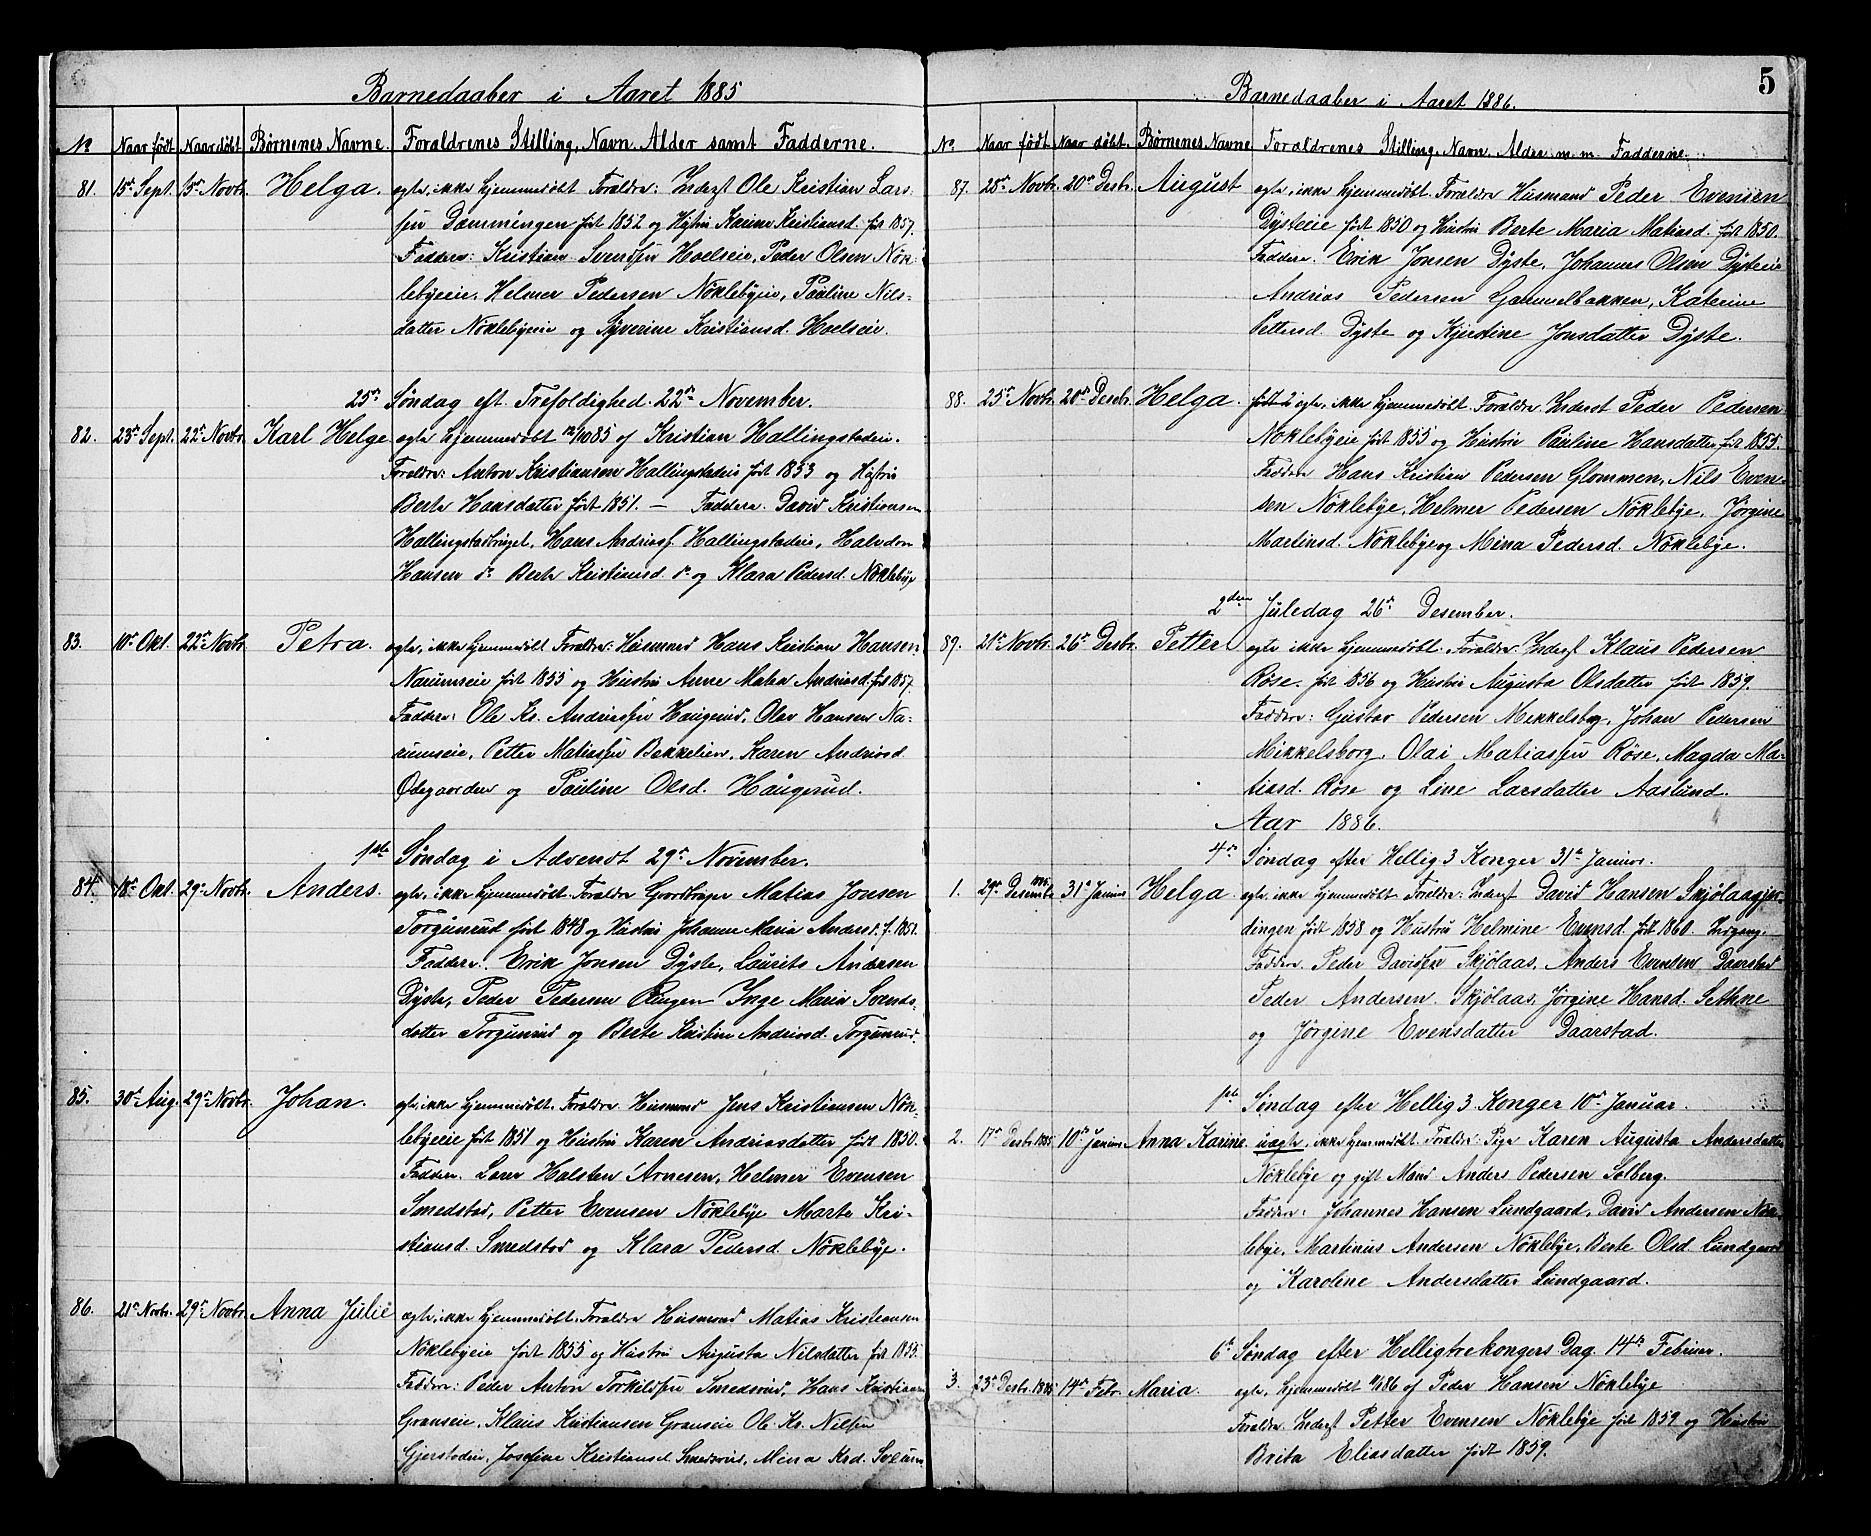 Barnedaaber i Aaret 1885
No Naar født Naar døbt Børnenes Navne. Forældrenes Stilling, Navn, Alder samt Fadderne.
81. 15de Sept. 15de Novbr. Helga. egte, ikke hjemmedøbt. Forældre: Inderst Ole Kristian Lars-
sen Dæmmingen født 1852 og Hustru Karine Kristiansd. født 1857.
Faddere: Kristian Svendsen Hoelseie, Peder Olsen Nøk-
lebyeeie, Helmer Pedersen Nøklebyeie, Pauline Nils-
datter Nøklebyeie og Syverine Kristiansd. Hoelseie.
25de Søndag eft. Trefoldighed. 22de November.
82. 23de Sept. 22de Novbr. Karl Helge egte hjemmedøbt 12/10 85 af Kristian Hallingstadeie.
Forældre: Anton Kristiansen Hallingstadeie født 1853 og Hustru
Berte Hansdatter født 1851. — Faddere. David Kristiansen
Hallingstadbriget, Hans Andriasf. Hallingstadeie, Halvdon
Hansen do Berte Kristiansd. do og Klara Pedersd. Nøklebye
83. 10de Okt. 22de Novbr. Petra. egte, ikke hjemmedøbt. Forældre: Husmand Hans Kristian Hansen
Narumseie født 1855 og Hustru Anne Malea Andriasd. født 1857.
Faddere: Ole Kr. Andriassen Haugerud, Olav Hansen Na-
rumseie, Petter Matiassen Bekkelien, Karen Andriasd.
Ødegaarden og Pauline Olsd. Haugerud.
1ste Søndag i Advendt 29de November.
84. 18de Okt. 29de Novbr. Anders. egte, ikke hjemmedøbt. Forældre Gaardbruger Matias Jonsen
Torgunrud født 1848 og Hustru Johanne Maria Andersd. f. 1851.
Faddere: Erik Jonsen Dyste, Laurits Andersen
Dyste, Peder Pedersen Ringen Inge Maria Svends-
datter Torgunrud og Berte Kristine Andriasd. Torgunrud.
85. 30te Aug. 29de Novbr. Johan. egte, ikke hjemmedøbt. Forældre Husmand Jens Kristiansen Nøk-
lebyeie født 1851 og Hustru Karen Andriasdatter født 1850.
Faddere. Lars Halsten Arnesen, Helmer Evensen
Smedstad, Petter Evensen Nøklebye Marte Kri-
stiansd. Smedstad og Klara Pedersd. Nøklebye.
86. 21de Novbr. 29de Novbr. Anna Julie egte, ikke hjemmedøbt. Forældre Husmand Matias Kristiansen
Nøklebyeie født 1853 og Hustru Augusta Nilsdatter født 1855.
Faddere: Peder Anton Torkildsen Smedsrud, Hans Kristiansen
Granseie, Klaus Kristiansen Granseie Ole Kr. Nilsen
Gjerstadeie, Josefine Kristiansd. Smedsrud, Mina Krd. Solum
Barnedaaber i Aaret 1886.
5
No. Naar født. Naar døbt. Børnenes Navne Forældrenes Stilling, Navn, Alder m.m. Fadderne.
87. 25de Novbr. 20de Desbr. August egte, ikke hjemmedøbt. Forældre Husmand Peder Evensen
Dysteeie født 1850 og Hustru Berte Maria Matiasd. født 1850.
Faddere. Erik Jonsen Dyste, Johannes Olsen Dysteeie
Andrias Pedersen Gammelbakken, Katerine
Pettersd. Dyste og Kjerstine Jonsdatter Dyste.
88. 25de Novbr. 20de Desbr. Helga. egte, ikke hjemmedøbt. Forældre. Inderst Peder Pedersen
Nøklebyeie født 1855 og Hustru Pauline Hansdatter født 1855.
Faddere Hans Kristian Pedersen Glommen, Nils Even-
sen Nøklebye, Helmer Pedersen Nøklebye, Jørgine
Martinsd. Nøklebye og Mina Pedersd. Nøklebye.
2den Juledag 26de Desember.
89. 21de Novbr. 26de Desbr. Petter egte ikke hjemmedøbt. Forældre. Inderst Klaus Pedersen
Røse. født 1856 og Hustru Augusta Olsdatter født 1859.
Faddere: Gustav Pedersen Mikkelsborg, Johan Pedersen
Mikkelsborg, Olai Matiassen Røse, Magda Ma-
tiasd. Røse og Line Larsdatter Aaslund.
Aar 1886.
4de Søndag efter Hellig 3 Konger 31te Januar.
1. 29de Desember 1885 31te Januar Helga. egte, ikke hjemmedøbt Forældre: Inderst David Hansen Skjølaasgjer-
dingen født 1858 og Hustru Helmine Evensd. født 1860.
Faddere. Peder Davidsen Skjølaas, Anders Evensen Daarstad
Peder Andersen Skjølaas, Jørgine Hansd. Sethne
og Jørgine Evensdatter Daarstad.
1ste Søndag efter Hellig 3 Konger 10de Januar.
2. 17de Desbr. 1885 10de Januar Anna Karine. uægte, ikke hjemmedøbt. Forældre: Pige Karen Augusta Andersdatter
Nøklebye og gift Mand Anders Pedersen Solberg.
Faddere: Johannes Hansen Lundgaard, David Andersen Nøk-
lebye, Martinus Andersen Nøklebye, Berte Olsd. Lundgaard
og Karoline Andersdatter Lundgaard.
6te Søndag efter Helligtrekongers Dag 14de Februar.
3. 23de Desbr. 1885 14de Febr. Maria. egte, hjemmedøbt /1 86 af Peder Hansen Nøklebye
Forældre. Inderst Petter Evensen Nøklebye født 1859 og Hustru
Brita Eliasdatter født 1859.